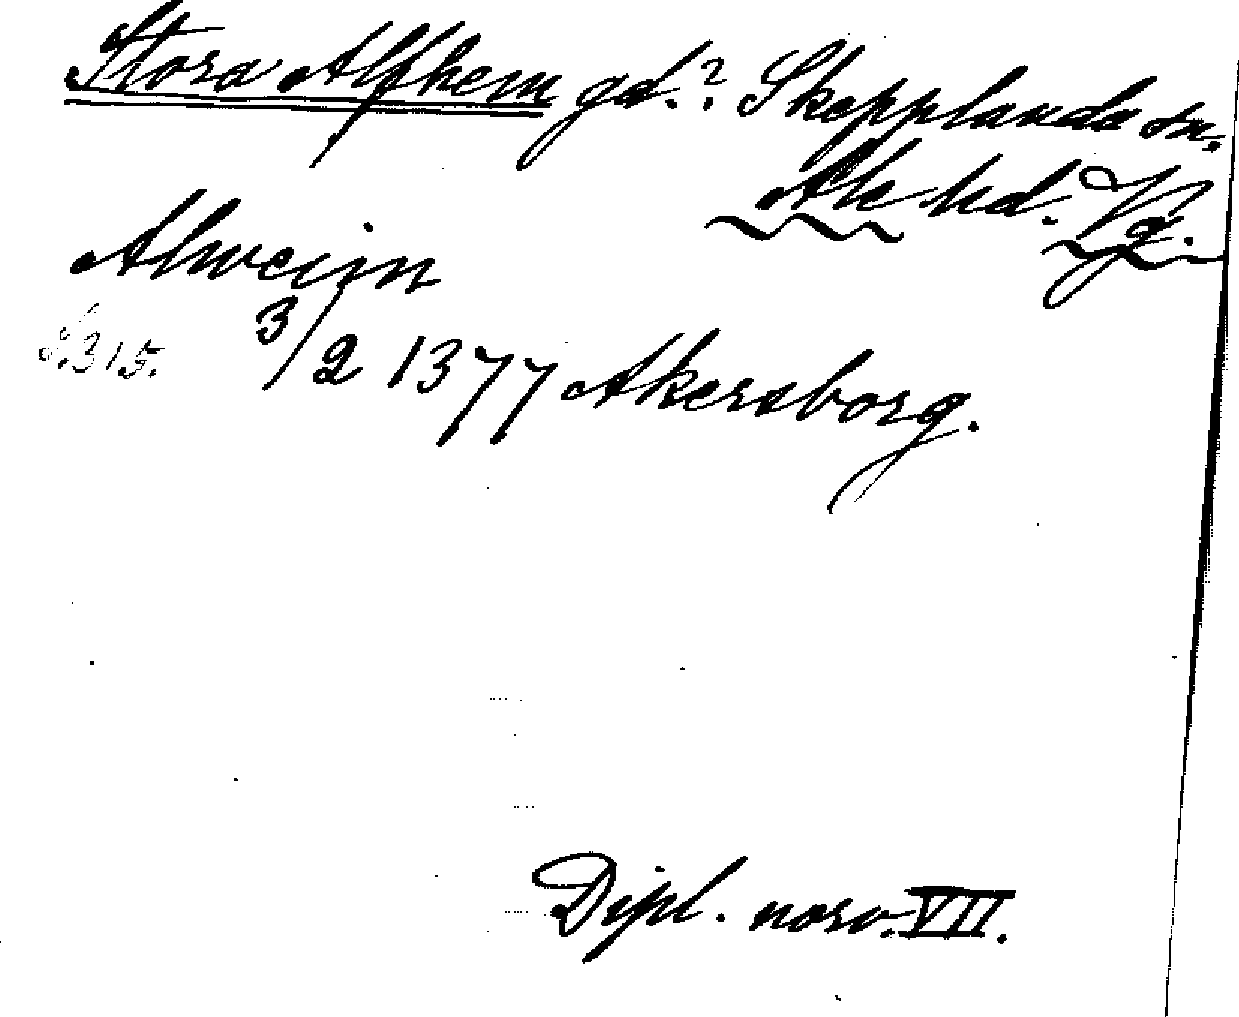 Stora Alfhem gd.? Skepplanda sn.
Ale hd. Vg.
Alweim
S. 315. 3/2 1377 Akersborg.
Dipl. norv. VII.